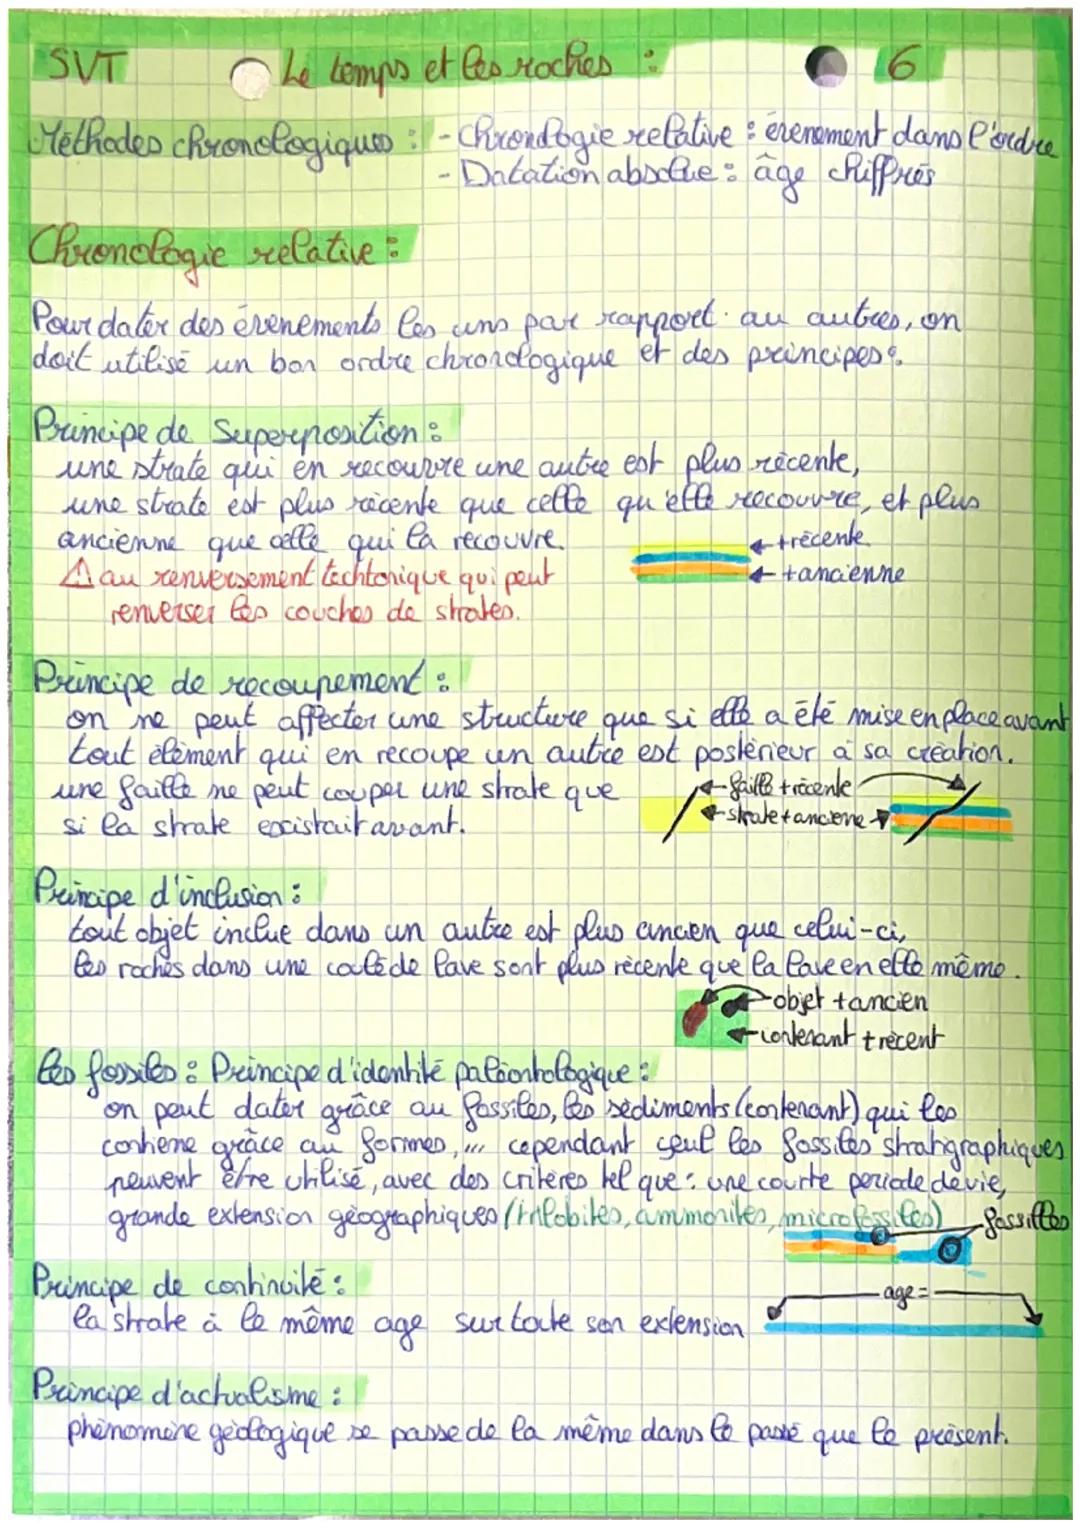 SVT Le temps et les roches : 6
Méthodes chronologiques : - Chronologie relative : évenement dans l'ordre
- Datation absolue : âge chiffrés
Chronologie relative :
Pour dater des évenements les uns par rapport au autres, on
doit utilisé un bon ordre chronologique et des principes :
Principe de Superposition :
une strate qui en recouvre une autre est plus récente,
une strate est plus récente que celle qu'elle recouvre, et plus
ancienne que celle qui la recouvre.
+ récente
⚠ au renversement techtonique qui peut
+ ancienne
renverser les couches de strates.
Principe de recoupement :
on ne peut affecter une structure que si elle a été mise en place avant
tout élément qui en recoupe un autre est postérieur à sa création.
une faille ne peut couper une strate que
faille + récente
si la strate existait avant.
strate + anciene
Principe d'inclusion :
tout objet inclue dans un autre est plus ancien que celui-ci,
les roches dans une coulé de lave sont plus récente que la lave en elle même.
objet + ancien
contenant + récent
Les fossiles : Principe d'identité paléontologique :
on peut dater grâce au fossiles, les sédiments (contenant) qui les
contiene grâce au formes, ... cependant seul les fossiles stratigraphiques
peuvent être utilisé, avec des critères tel que : une courte periode de vie,
grande extension géographiques (trilobites, ammonites, microfossiles)
fossilles
Principe de continuité :
age =
la strate à le même age sur toute son extension
Principe d'actualisme :
phénomène géologique se passe de la même dans le passé que le présent.